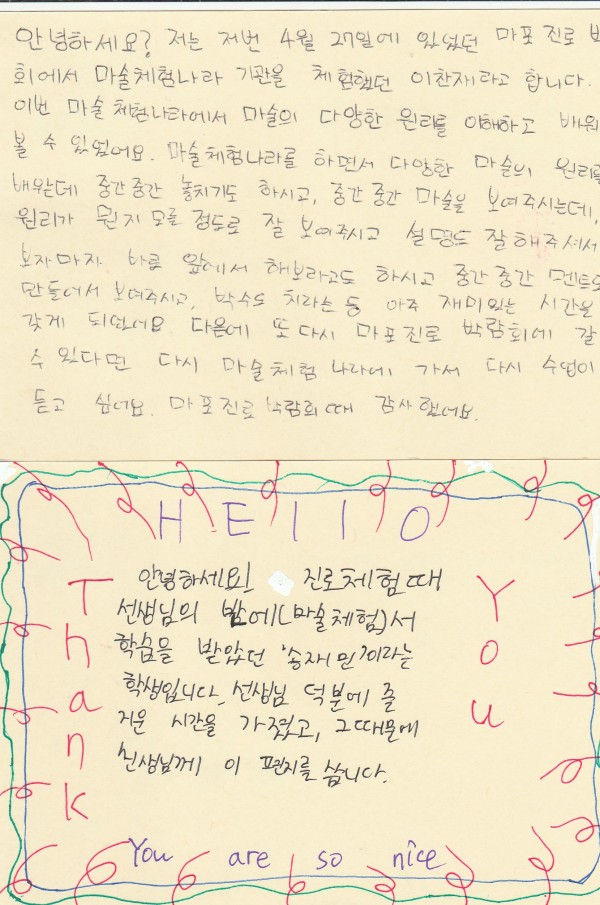 안녕하세요? 저는 저번 4월 27일에 있었던 마포 진로 박
회에서 마술체험나라 기관을 체험했던 이찬재라고 합니다.
이번 마술 체험나라에서 마술의 다양한 원리를 이해하고 배워
볼 수 있었어요. 마술체험나라를 하면서 다양한 마술의 원리를
배왔는데 중간중간 놓치기도 하시고, 중간중간 마술을 보여주시는데,
원리가 뭔지 모를 정도로 잘 보여주시고 설명도 잘해주셔서
보자마자 바로 앞에서 해보라고도 하시고 중간중간 멘트도
만들어서 보여주시고, 박수도 치라는 등 아주 재미있는 시간을
갖게 되었어요 다음에 또 다시 마포진로 박람회에 갈
수 있다면 다시 마술체험 나라에 가서 다시 수업이
듣고 싶어요. 마포진로박람회때 감사했어요.
HEllO
Thank
You
안녕하세요! 진로체험때
선생님의 밤에(마술체험)서
학습을 받았던 '송재민'이라는
학생입니다. 선생님 덕분에 즐
거운 시간을 가졌고, 그때문에
선생님께 이 편지를 씁니다.
You are so nice